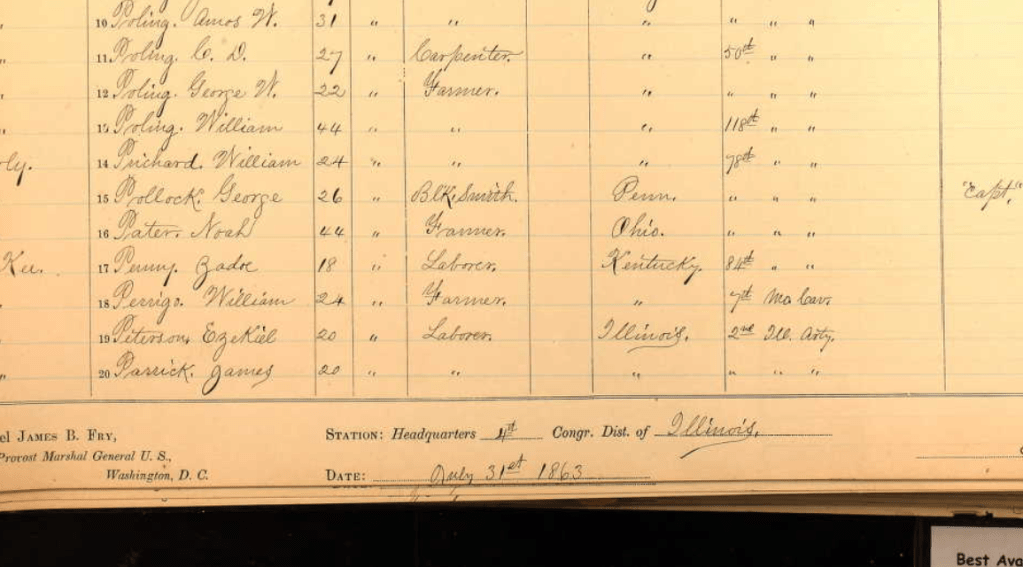 10 Poling. Amos W. 31 " " " " " "
" 11 Poling. C. D. 27 " Carpenter. " 50th " "
" 12 Poling. George W. 22 " Farmer. " " " "
" 13 Poling. William 44 " " " 118th " "
ly. 14 Prichard. William 24 " " " 78th " "
15 Pollock. George 26 " Blk. Smith. Penn. " " " "Capt,"
16 Pater. Noah 44 " Farmer. Ohio. " " "
Ku. 17 Penny. Zadoc 18 " Laborer. Kentucky. 84th " "
" 18 Perrigo. William 24 " Farmer. " 7th Mo Cav.
" 19 Peterson, Ezekiel 20 " Laborer. Illinois. 2nd Ill. Arty.
" 20 Parrick. James 20 " " " " " "
el JAMES B. FRY,
Provost Marshal General U. S.,
Washington, D. C.
STATION: Headquarters 4th Congr. Dist. of Illinois.
DATE: July 31st 1863
Best Ava